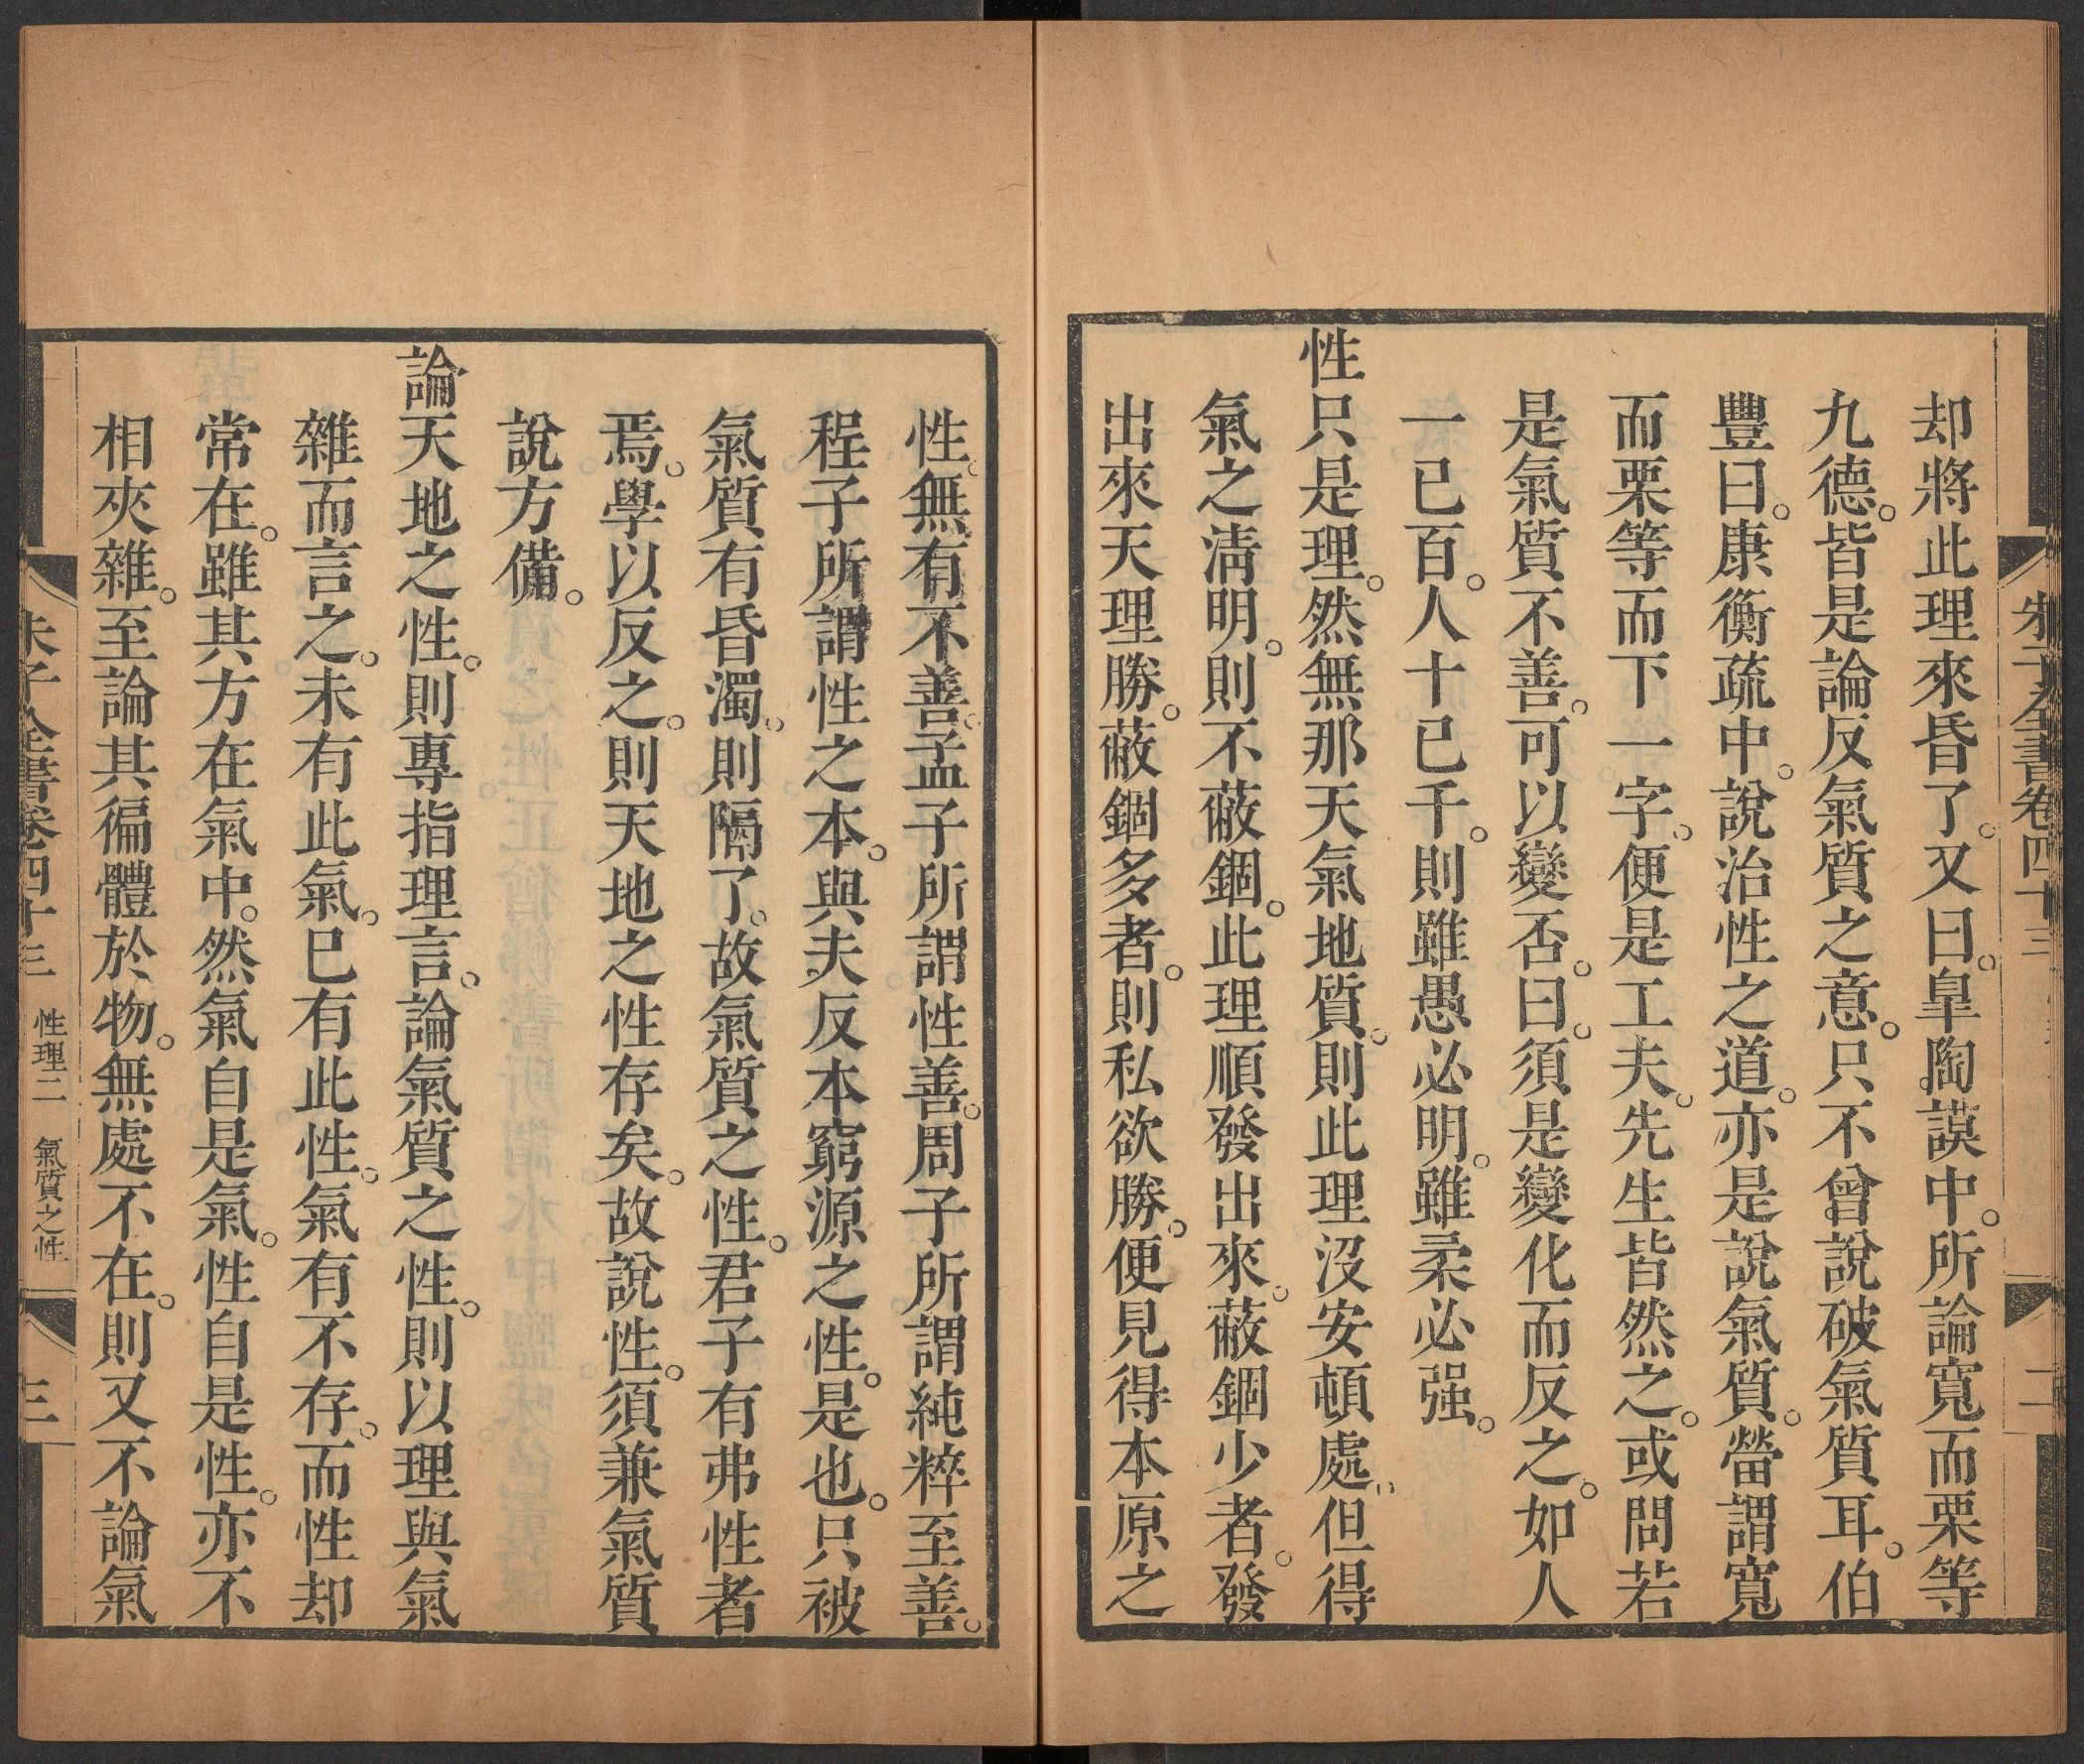 朱子全書卷四十三
二
却將此理來昏了。又曰。皐陶謨中。所論寬而栗等
九德。皆是論反氣質之意。只不曾說破氣質耳。伯
豐曰。康衡疏中。說治性之道。亦是說氣質。㽦謂寬
而栗等而下一字。便是工夫。先生皆然之。或問若
是氣質不善。可以變否。曰。須是變化而反之。如人
一已百。人十已千。則雖愚必明。雖柔必强。
性只是理。然無那天氣地質。則此理沒安頓處。但得
氣之淸明。則不蔽錮。此理順發出來。蔽錮少者。發
出來天理勝。蔽錮多者。則私欲勝。便見得本原之
性。無有不善。孟子所謂性善。周子所謂純粹至善。
程子所謂性之本。與夫反本窮源之性。是也。只被
氣質有昏濁。則隔了。故氣質之性。君子有弗性者
焉。學以反之。則天地之性存矣。故說性。須兼氣質
說方備。
論天地之性。則專指理言。論氣質之性。則以理與氣
雜而言之。未有此氣。已有此性。氣有不存。而性却
常在。雖其方在氣中。然氣自是氣。性自是性。亦不
相夾雜。至論其徧體於物。無處不在。則又不論氣
朱子全書卷四十三 性理二 氣質之性
三